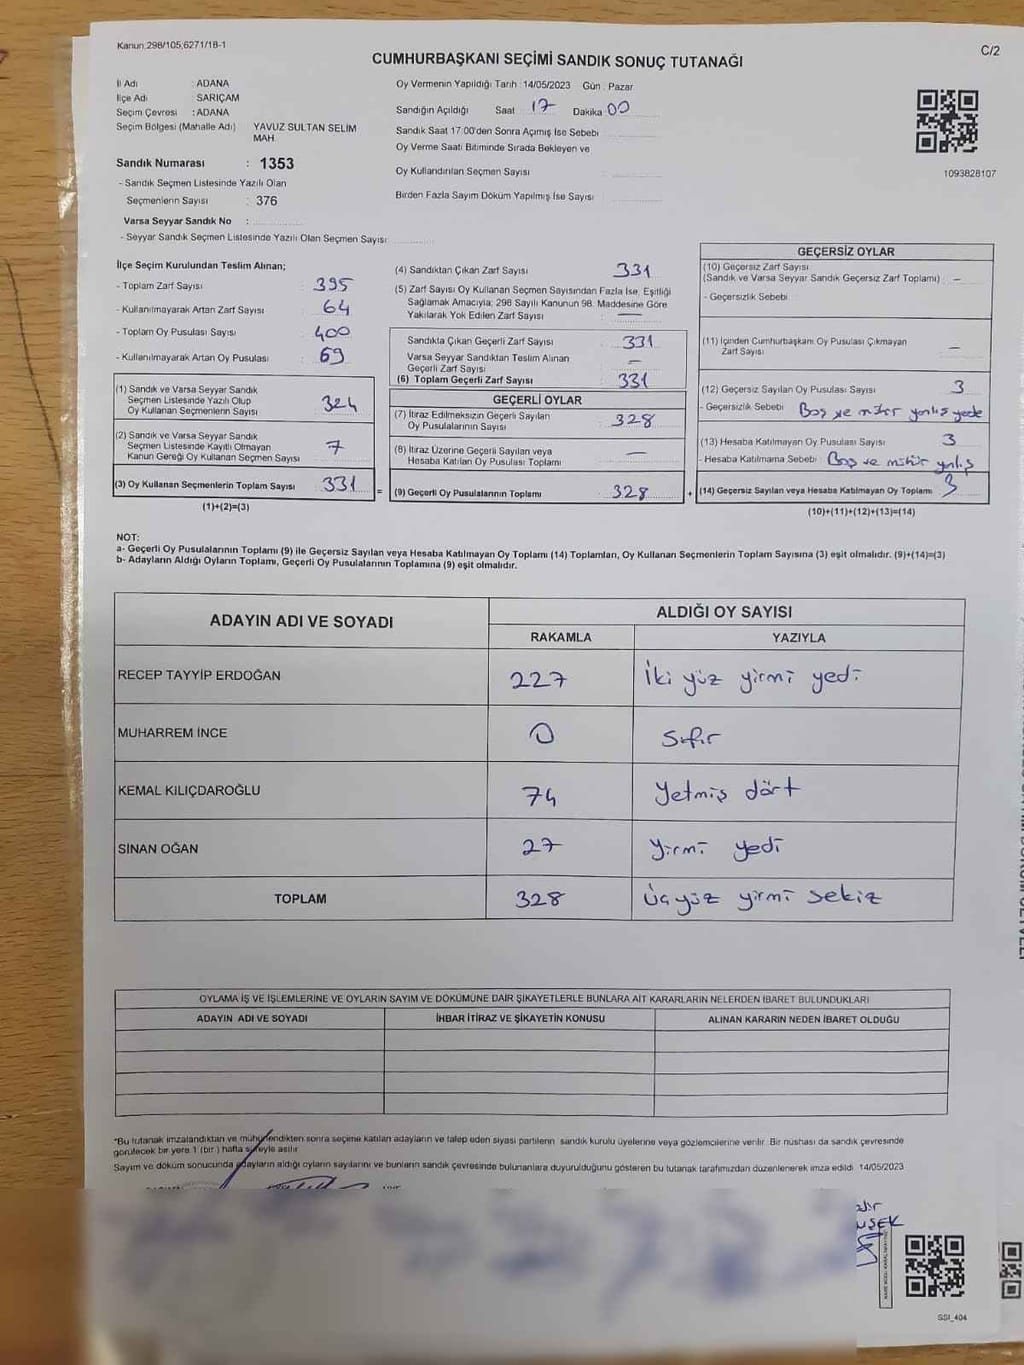 Kanun;298/105,6271/1B-1
C/2
CUMHURBAŞKANI SEÇİMİ SANDIK SONUÇ TUTANAĞI
İl Adı : ADANA
İlçe Adı : SARIÇAM
Seçim Çevresi : ADANA
Seçim Bölgesi (Mahalle Adı) YAVUZ SULTAN SELİM MAH.
Sandık Numarası : 1353
- Sandık Seçmen Listesinde Yazılı Olan
Seçmenlerin Sayısı : 376
Varsa Seyyar Sandık No :
- Seyyar Sandık Seçmen Listesinde Yazılı Olan Seçmen Sayısı
Oy Vermenin Yapıldığı Tarih :14/05/2023 Gün : Pazar
Sandığın Açıldığı Saat 17 Dakika 00
Sandık Saat 17:00'den Sonra Açımış İse Sebebi
Oy Verme Saati Bitiminde Sırada Bekleyen ve
Oy Kullandırılan Seçmen Sayısı
Birden Fazla Sayım Döküm Yapılmış İse Sayısı
1093828107
İlçe Seçim Kurulundan Teslim Alınan;
- Toplam Zarf Sayısı : 395
- Kullanılmayarak Artan Zarf Sayısı : 64
- Toplam Oy Pusulası Sayısı : 400
- Kullanılmayarak Artan Oy Pusulası : 69
(1) Sandık ve Varsa Seyyar Sandık
Seçmen Listesinde Yazılı Olup
Oy Kullanan Seçmenlerin Sayısı 324
(2) Sandık ve Varsa Seyyar Sandık
Seçmen Listesinde Kayıtlı Olmayan
Kanun Gereği Oy Kullanan Seçmen Sayısı 7
(3) Oy Kullanan Seçmenlerin Toplam Sayısı 331
(1)+(2)=(3)
=
(4) Sandıktan Çıkan Zarf Sayısı 331
(5) Zarf Sayısı Oy Kullanan Seçmen Sayısından Fazla İse, Eşitliği
Sağlamak Amacıyla; 298 Sayılı Kanunun 98. Maddesine Göre
Yakılarak Yok Edilen Zarf Sayısı : —
Sandıkta Çıkan Geçerli Zarf Sayısı 331
Varsa Seyyar Sandıktan Teslim Alınan
Geçerli Zarf Sayısı —
(6) Toplam Geçerli Zarf Sayısı 331
GEÇERLİ OYLAR
(7) İtiraz Edilmeksizin Geçerli Sayılan
Oy Pusulalarının Sayısı 328
(8) İtiraz Üzerine Geçerli Sayılan veya
Hesaba Katılan Oy Pusulası Toplamı —
(9) Geçerli Oy Pusulalarının Toplamı 328
+
GEÇERSİZ OYLAR
(10) Geçersiz Zarf Sayısı
(Sandık ve Varsa Seyyar Sandık Geçersiz Zarf Toplamı) : —
- Geçersizlik Sebebi
(11) İçinden Cumhurbaşkanı Oy Pusulası Çıkmayan
Zarf Sayısı —
(12) Geçersiz Sayılan Oy Pusulası Sayısı 3
- Geçersizlik Sebebi : Boş ve mühür yanlış yerde
(13) Hesaba Katılmayan Oy Pusulası Sayısı 3
- Hesaba Katılmama Sebebi : Boş ve mühür yanlış
(14) Geçersiz Sayılan veya Hesaba Katılmayan Oy Toplamı 3
(10)+(11)+(12)+(13)=(14)
NOT:
a- Geçerli Oy Pusulalarının Toplamı (9) ile Geçersiz Sayılan veya Hesaba Katılmayan Oy Toplamı (14) Toplamları, Oy Kullanan Seçmenlerin Toplam Sayısına (3) eşit olmalıdır. (9)+(14)=(3)
b- Adayların Aldığı Oyların Toplamı, Geçerli Oy Pusulalarının Toplamına (9) eşit olmalıdır.
ADAYIN ADI VE SOYADI ALDIĞI OY SAYISI
RAKAMLA YAZIYLA
RECEP TAYYİP ERDOĞAN 227 İki yüz yirmi yedi
MUHARREM İNCE 0 Sıfır
KEMAL KILIÇDAROĞLU 74 Yetmiş dört
SİNAN OĞAN 27 Yirmi yedi
TOPLAM 328 Üçyüz yirmi sekiz
OYLAMA İŞ VE İŞLEMLERİNE VE OYLARIN SAYIM VE DÖKÜMÜNE DAİR ŞİKAYETLERLE BUNLARA AİT KARARLARIN NELERDEN İBARET BULUNDUKLARI
ADAYIN ADI VE SOYADI İHBAR İTİRAZ VE ŞİKAYETİN KONUSU ALINAN KARARIN NEDEN İBARET OLDUĞU
*Bu tutanak imzalandıktan ve mühürlendikten sonra seçime katılan adayların ve talep eden siyasi partilerin sandık kurulu üyelerine veya gözlemcilerine verilir. Bir nüshası da sandık çevresinde
görülecek bir yere 1 (bir ) hafta süreyle asılır
Sayım ve döküm sonucunda adayların aldığı oyların sayılarını ve bunların sandık çevresinde bulunanlara duyurulduğunu gösteren bu tutanak tarafımızdan düzenlenerek imza edildi. 14/05/2023
SSI_404